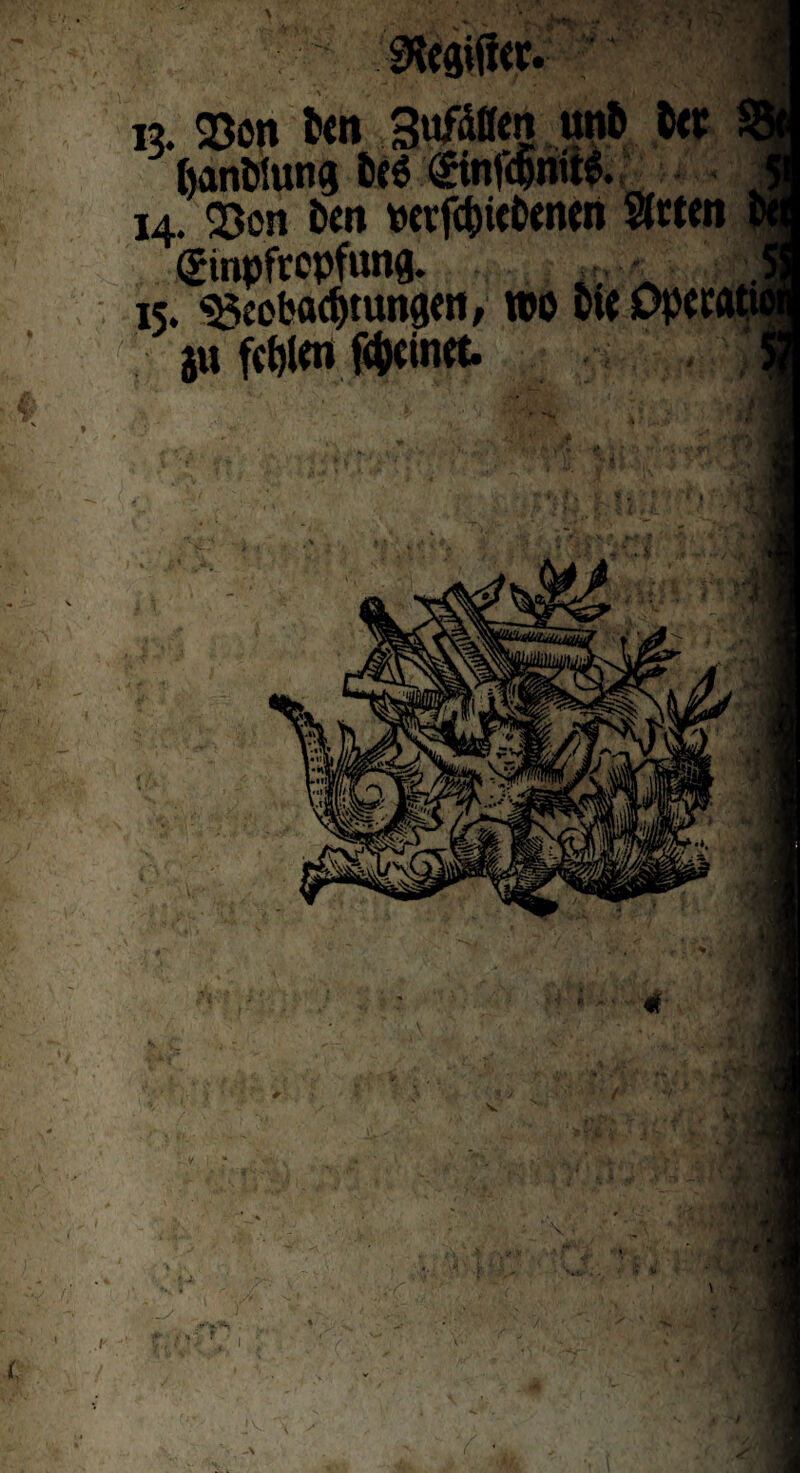 Register.
13. Von den Zufällen und der Be
handlung des Einschnitts. 5
14. Von den verschiedenen Arten de
Einpfropfung. 5
15. Beobachtungen, wo die Operation
zu fehlen scheinet. 5